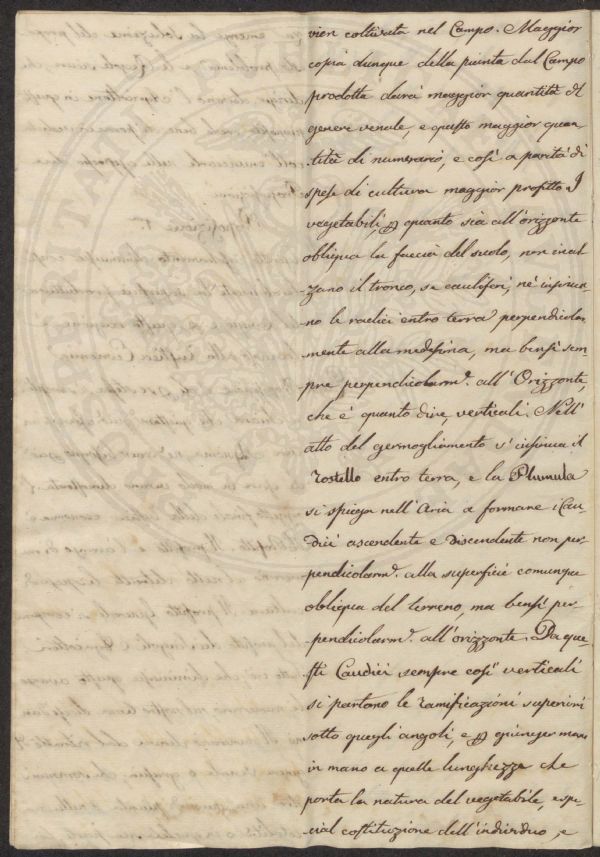 vien coltivata nel Campo. Maggior
copia dunque della pianta dal Campo
prodotta darà maggior quantità di
genere venale, e questo maggior quan-
-tità di numerario, e così a parità di
spese di cultura maggior profitto. I
vegetabili, quanto sia all'orizzonte
obliqua la faccia del suolo, non inal-
-zano il tronco, se cauliferi, nè insinua-
no le radici entro terra perpendicolar-
mente alla medesima, ma bensì sem-
pre perpendicolarm.e all'Orizzonte,
che è quanto dire, verticali. Nell'
atto del germogliamento s'insinua il
rostello entro terra, e la Plumula
si spiega nell'Aria a formare i Cau-
dici ascendente e discendente non per-
pendicolarm.e alla superficie comunque
obliqua del terreno, ma bensì per-
-pendicolarm.e all'orizzonte. Da que-
sti Caudici sempre così verticali
si partono le ramificazioni superiori
sotto quegli angoli, e giunger mano
in mano a quelle lunghezze che
porta la natura del vegetabile, e spe-
cial costituzione dell'individuo, e